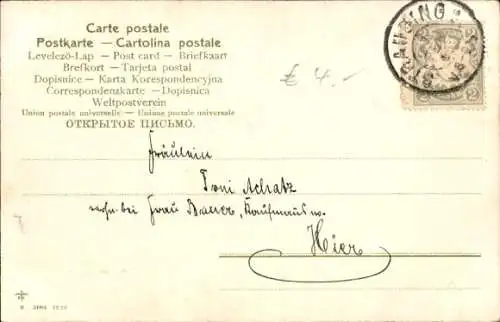 Carte postale
Postkarte — Cartolina postale
Levelező-Lap — Post card — Briefkaart
Brefkort — Tarjeta postal
Dopisnice — Karta Korespondencyjna
Correspondenzkarte — Dopisnica
Weltpostverein
Union postale universelle — Unione postale universale
ОТКРЫТОЕ ПИСЬМО.
€ 4.-
STRAUBING
2
Fräulein
Toni Achatz
bei Frau Bauer, Kaufmanns
Hier